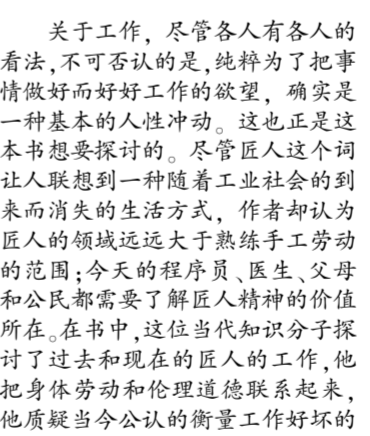 关于工作，尽管各人有各人的
看法，不可否认的是，纯粹为了把事
情做好而好好工作的欲望，确实是
一种基本的人性冲动。这也正是这
本书想要探讨的。尽管匠人这个词
让人联想到一种随着工业社会的到
来而消失的生活方式，作者却认为
匠人的领域远远大于熟练手工劳动
的范围；今天的程序员、医生、父母
和公民都需要了解匠人精神的价值
所在。在书中，这位当代知识分子探
讨了过去和现在的匠人的工作，他
把身体劳动和伦理道德联系起来，
他质疑当今公认的衡量工作好坏的